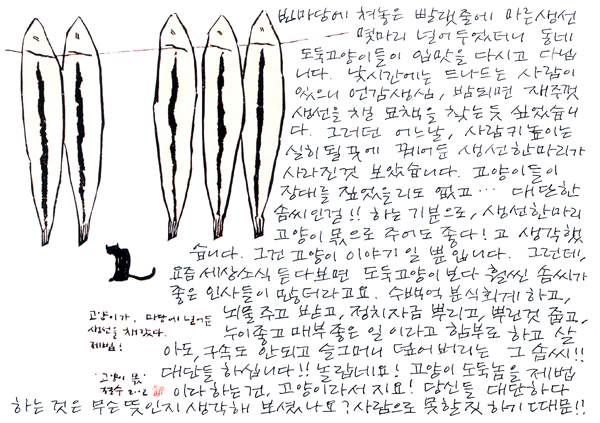 뵈마당에 쳐놓은 빨랫줄에 마른생선
몇마리 널어두었더니 동네
도둑고양이들이 입맛을 다시고 다닙
니다. 낮시간에는 드나드는 사람이
있으니 언감생심, 밤되면 재주껏
생선을 챌 묘책을 찾는듯 싶었습니
다. 그러던 어느날, 사람키높이는
실히될 곳에 꿰어둔 생선한마리가
사라진것 보았습니다. 고양이들이
장대를 짚었을리도 없고… 대단한
솜씨인걸!! 하는 기분으로, 생선한마리
고양이 몫으로 주어도 좋다! 고 생각했
습니다. 그건 고양이 이야기 일 뿐입니다. 그런데,
요즘 세상소식 듣다보면 도둑고양이보다 훨씬 솜씨가
좋은 인사들이 많더라고요. 수백억 분식회계 하고,
뇌물주고 받고, 정치자금 뿌리고, 뿌린것 줍고,
누이좋고 매부좋은 일 이라고 함부로 하고 살
아도, 구속도 안되고 슬그머니 덮어버리는 그 솜씨!!
대단들 하십니다!! 놀랍네요! 고양이 도둑놈을 제법
이라 하는건, 고양이라서 지요! 당신들 대단하다
하는 것은 무슨 뜻인지 생각해 보셨나요? 사람으로 못할짓 하기 때문!!
고양이가, 마당에 널어둔
생선을 채갔다.
제법!
'고양이 몫'
철수 2002